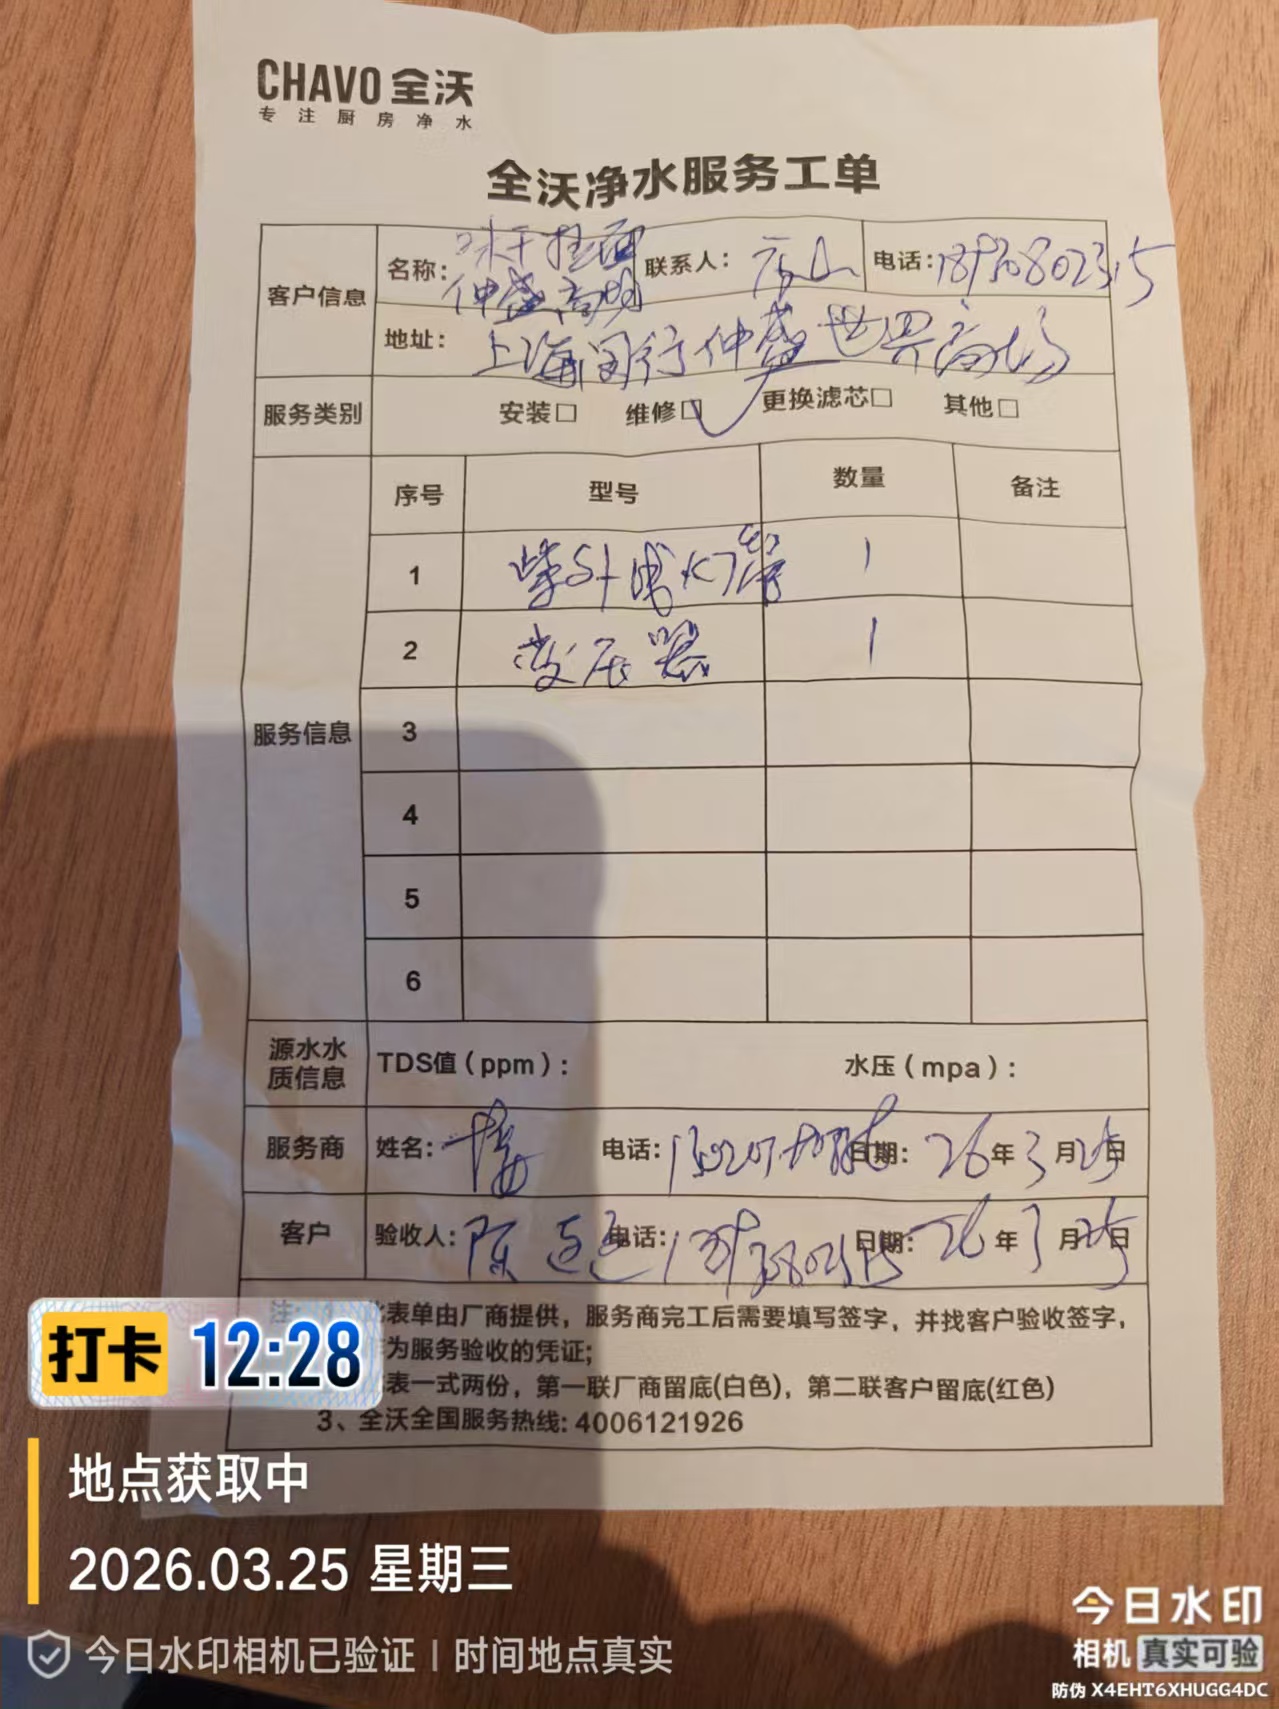 CHAVO 全沃
专注厨房净水
全沃净水服务工单
客户信息 名称: 味千拉面 仲盛商场 联系人: 店山 电话:
地址: 上海闵行仲盛世界商场
服务类别 安装□ 维修□✓ 更换滤芯□ 其他□
服务信息 序号 型号 数量 备注
1 紫外线灯管 1
2 变压器 1
3
4
5
6
源水水质信息 TDS值（ppm）: 水压（mpa）:
服务商 姓名: 电话: 日期: 26年3月25日
客户 验收人: 陈 电话: 日期: 26年3月25日
注: 此表单由厂商提供，服务商完工后需要填写签字，并找客户验收签字，
作为服务验收的凭证;
表一式两份，第一联厂商留底(白色)，第二联客户留底(红色)
3、全沃全国服务热线: 4006121926
打卡 12:28
地点获取中
2026.03.25 星期三
今日水印相机已验证 | 时间地点真实
今日水印
相机 真实可验
防伪 X4EHT6XHUGG4DC